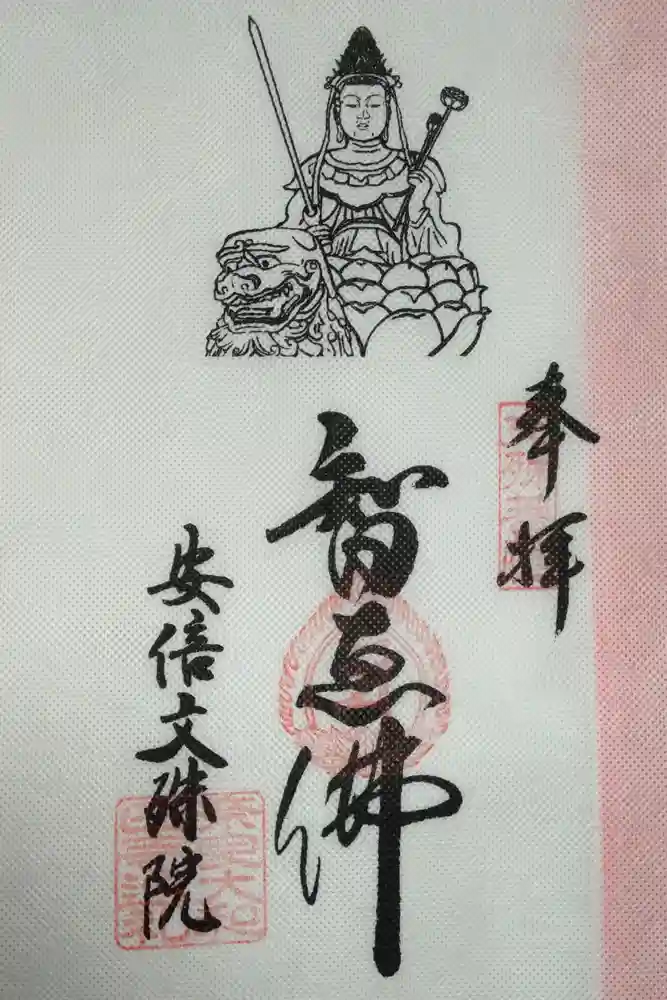 奉拝
智恵佛
安倍文殊院